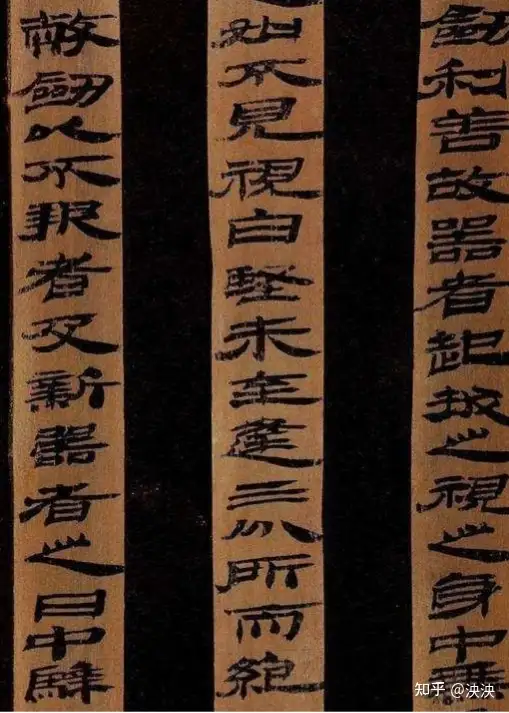 劍利善故器者起拔之視之身中無
如不見視白堅未至逢三分所而絕
敝劍以不報者及新器者之日中騂
知乎 @泱泱